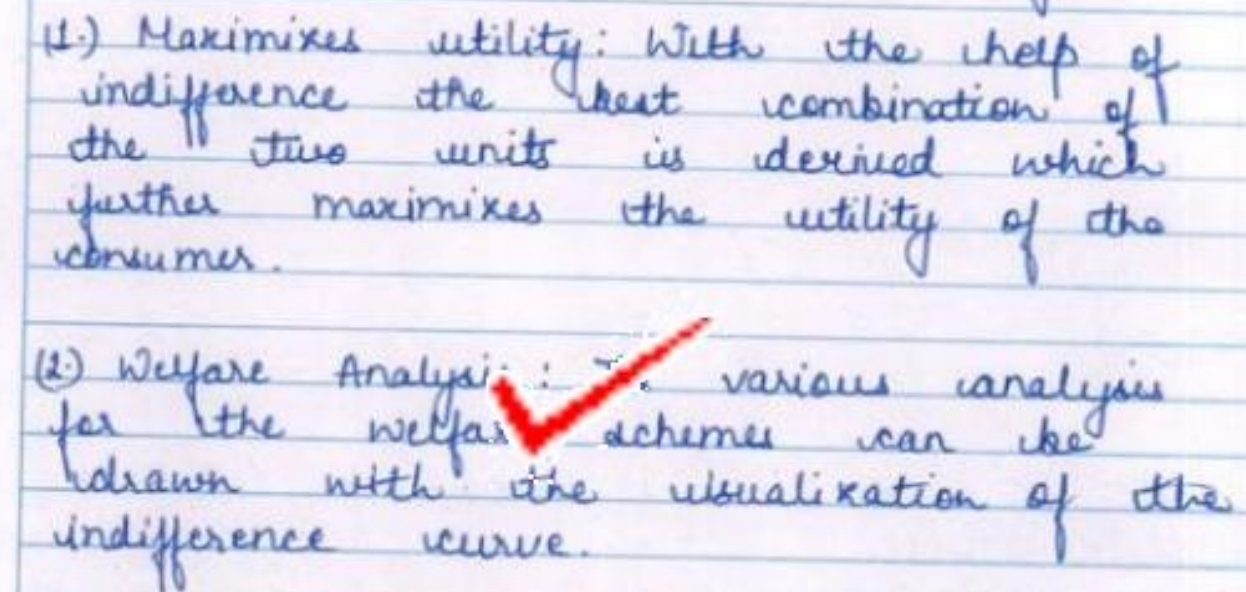 (1.) Maximixes utility: With the help of
indifference the best combination of
the two units is derived which
further maximixes the utility of the
consumer.
(2.) Welfare : various analysis
for the schemes can be
drawn with the visualixation of the
indifference curve.